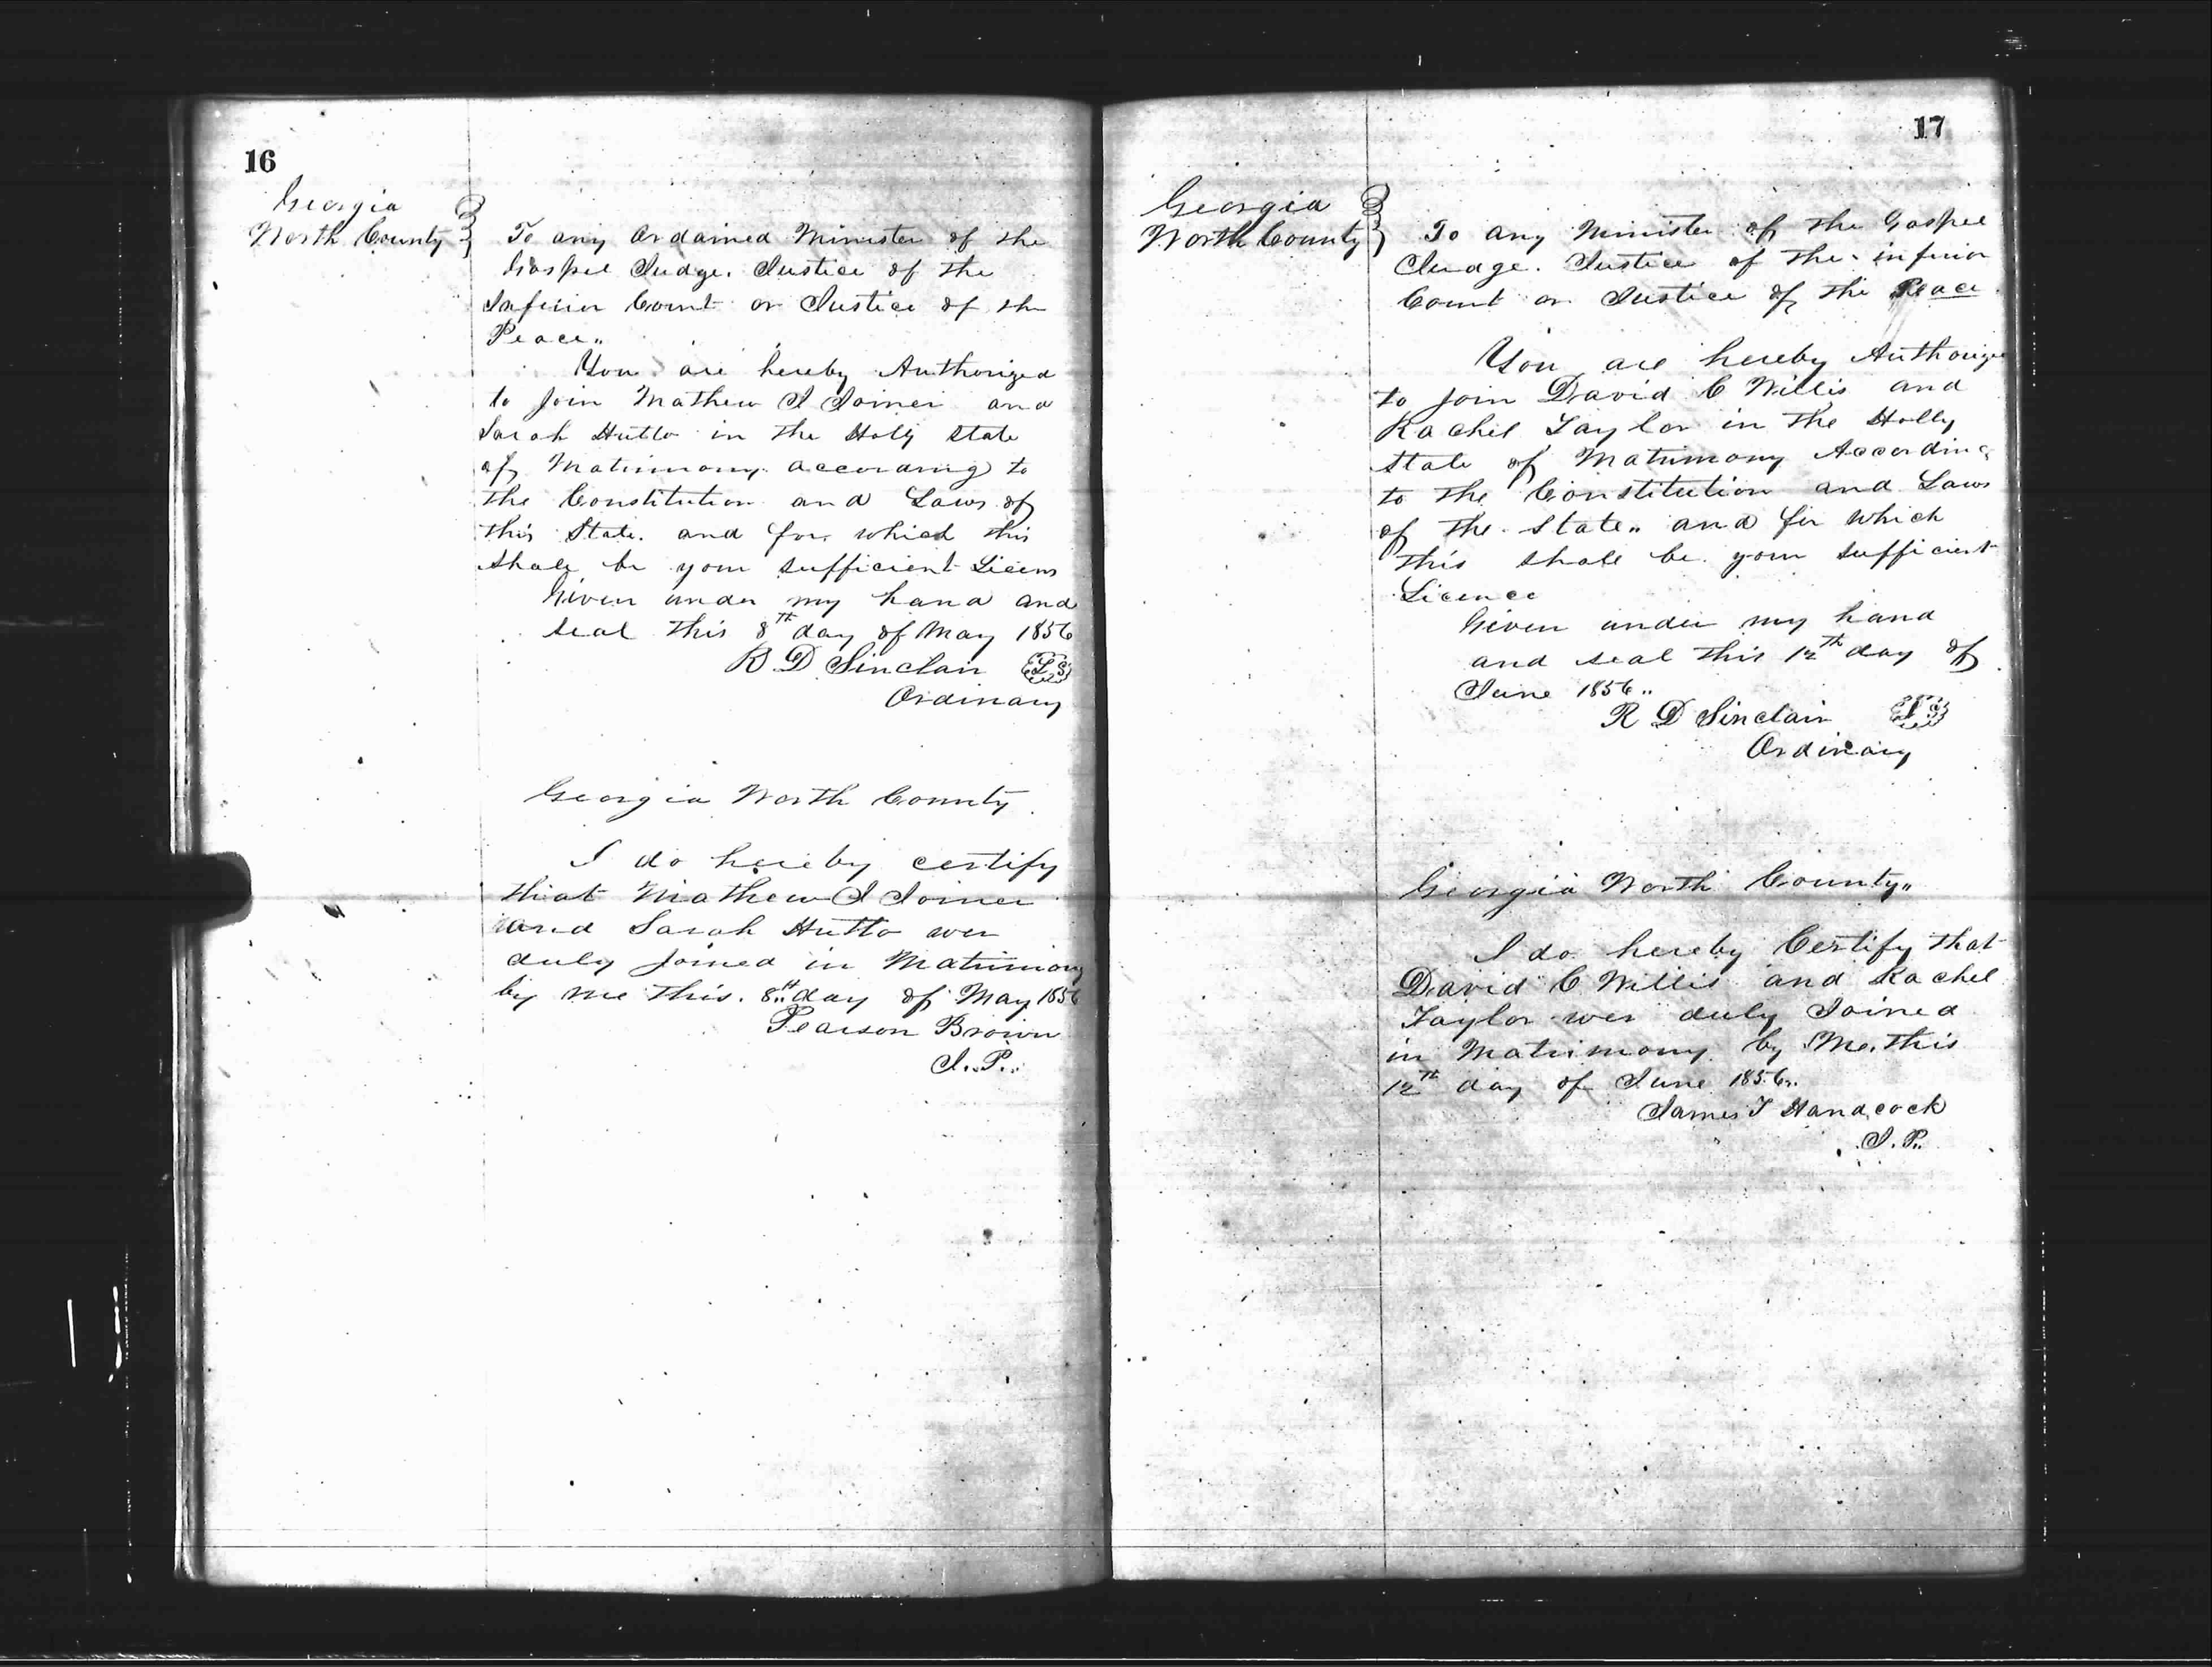 16
Georgia
Worth County
To any Ordained Minister of the
Gospel Judge. Justice of the
Inferior Court or Justice of the
Peace..
You are hereby Authorized
to Join Mathew J Joiner and
Sarah Hutto in the Holy State
of Matrimony according to
the Constitution and Laws of
this State. and for which this
Shall be your sufficient Licens
Given under my hand and
seal this 8th day of May 1856
R D Sinclair LS
Ordinary
Georgia Worth County
I do hereby certify
that Mathew J Joiner
and Sarah Hutto wer
duly Joined in Matrimony
by me this. 8th day of May 1856
Pearson Brown
J.P.
17
Georgia
Worth County
To any Minister of the Gospel
Judge. Justice of the inferior
Court or Justice of the Peace
You are hereby Authorize
to Join David C Willis and
Rachel Taylor in the Holly
State of Matrimony According
to the Constitution and Laws
of the State.. and for which
this shall be your sufficient
Licence
Given under my hand
and seal this 12th day of
June 1856..
R D Sinclair LS
Ordinary
Georgia Worth County..
I do hereby Certify that
David C Willis and Rachel
Taylor wer duly Joined
in Matrimony by Me. this
12th day of June 1856..
James T Handcock
J.P.